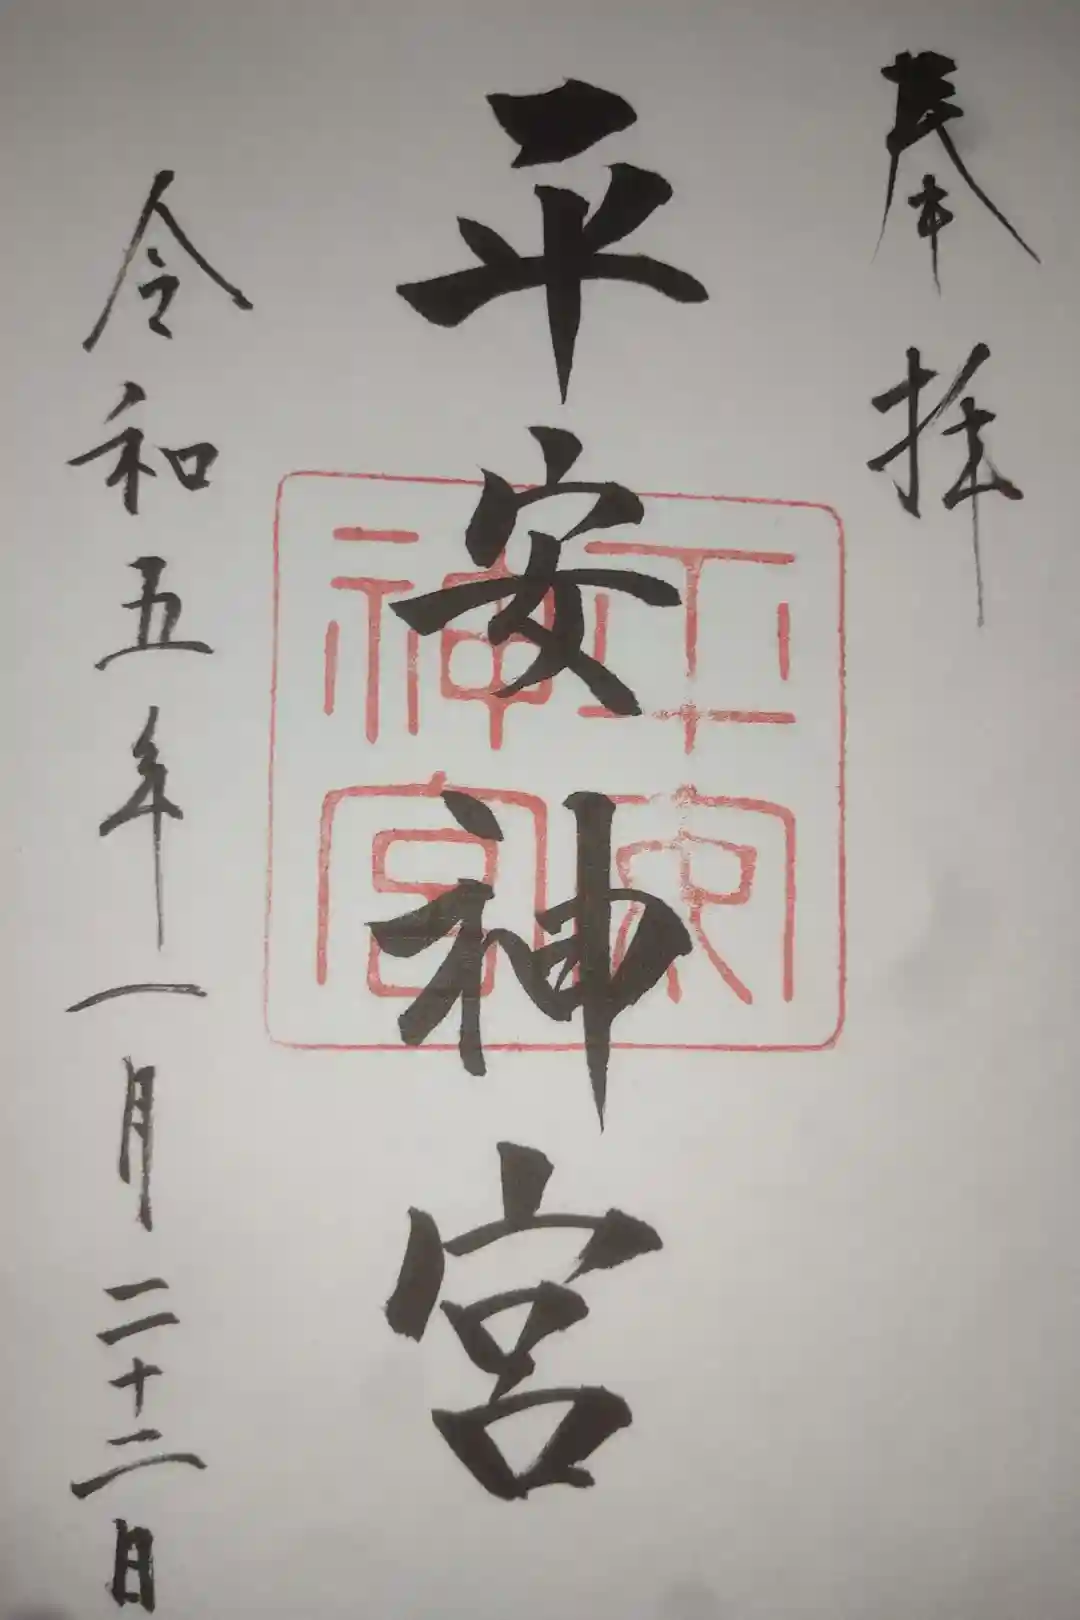 奉拝
平安神宮
平安神宮
令和五年一月二十二日